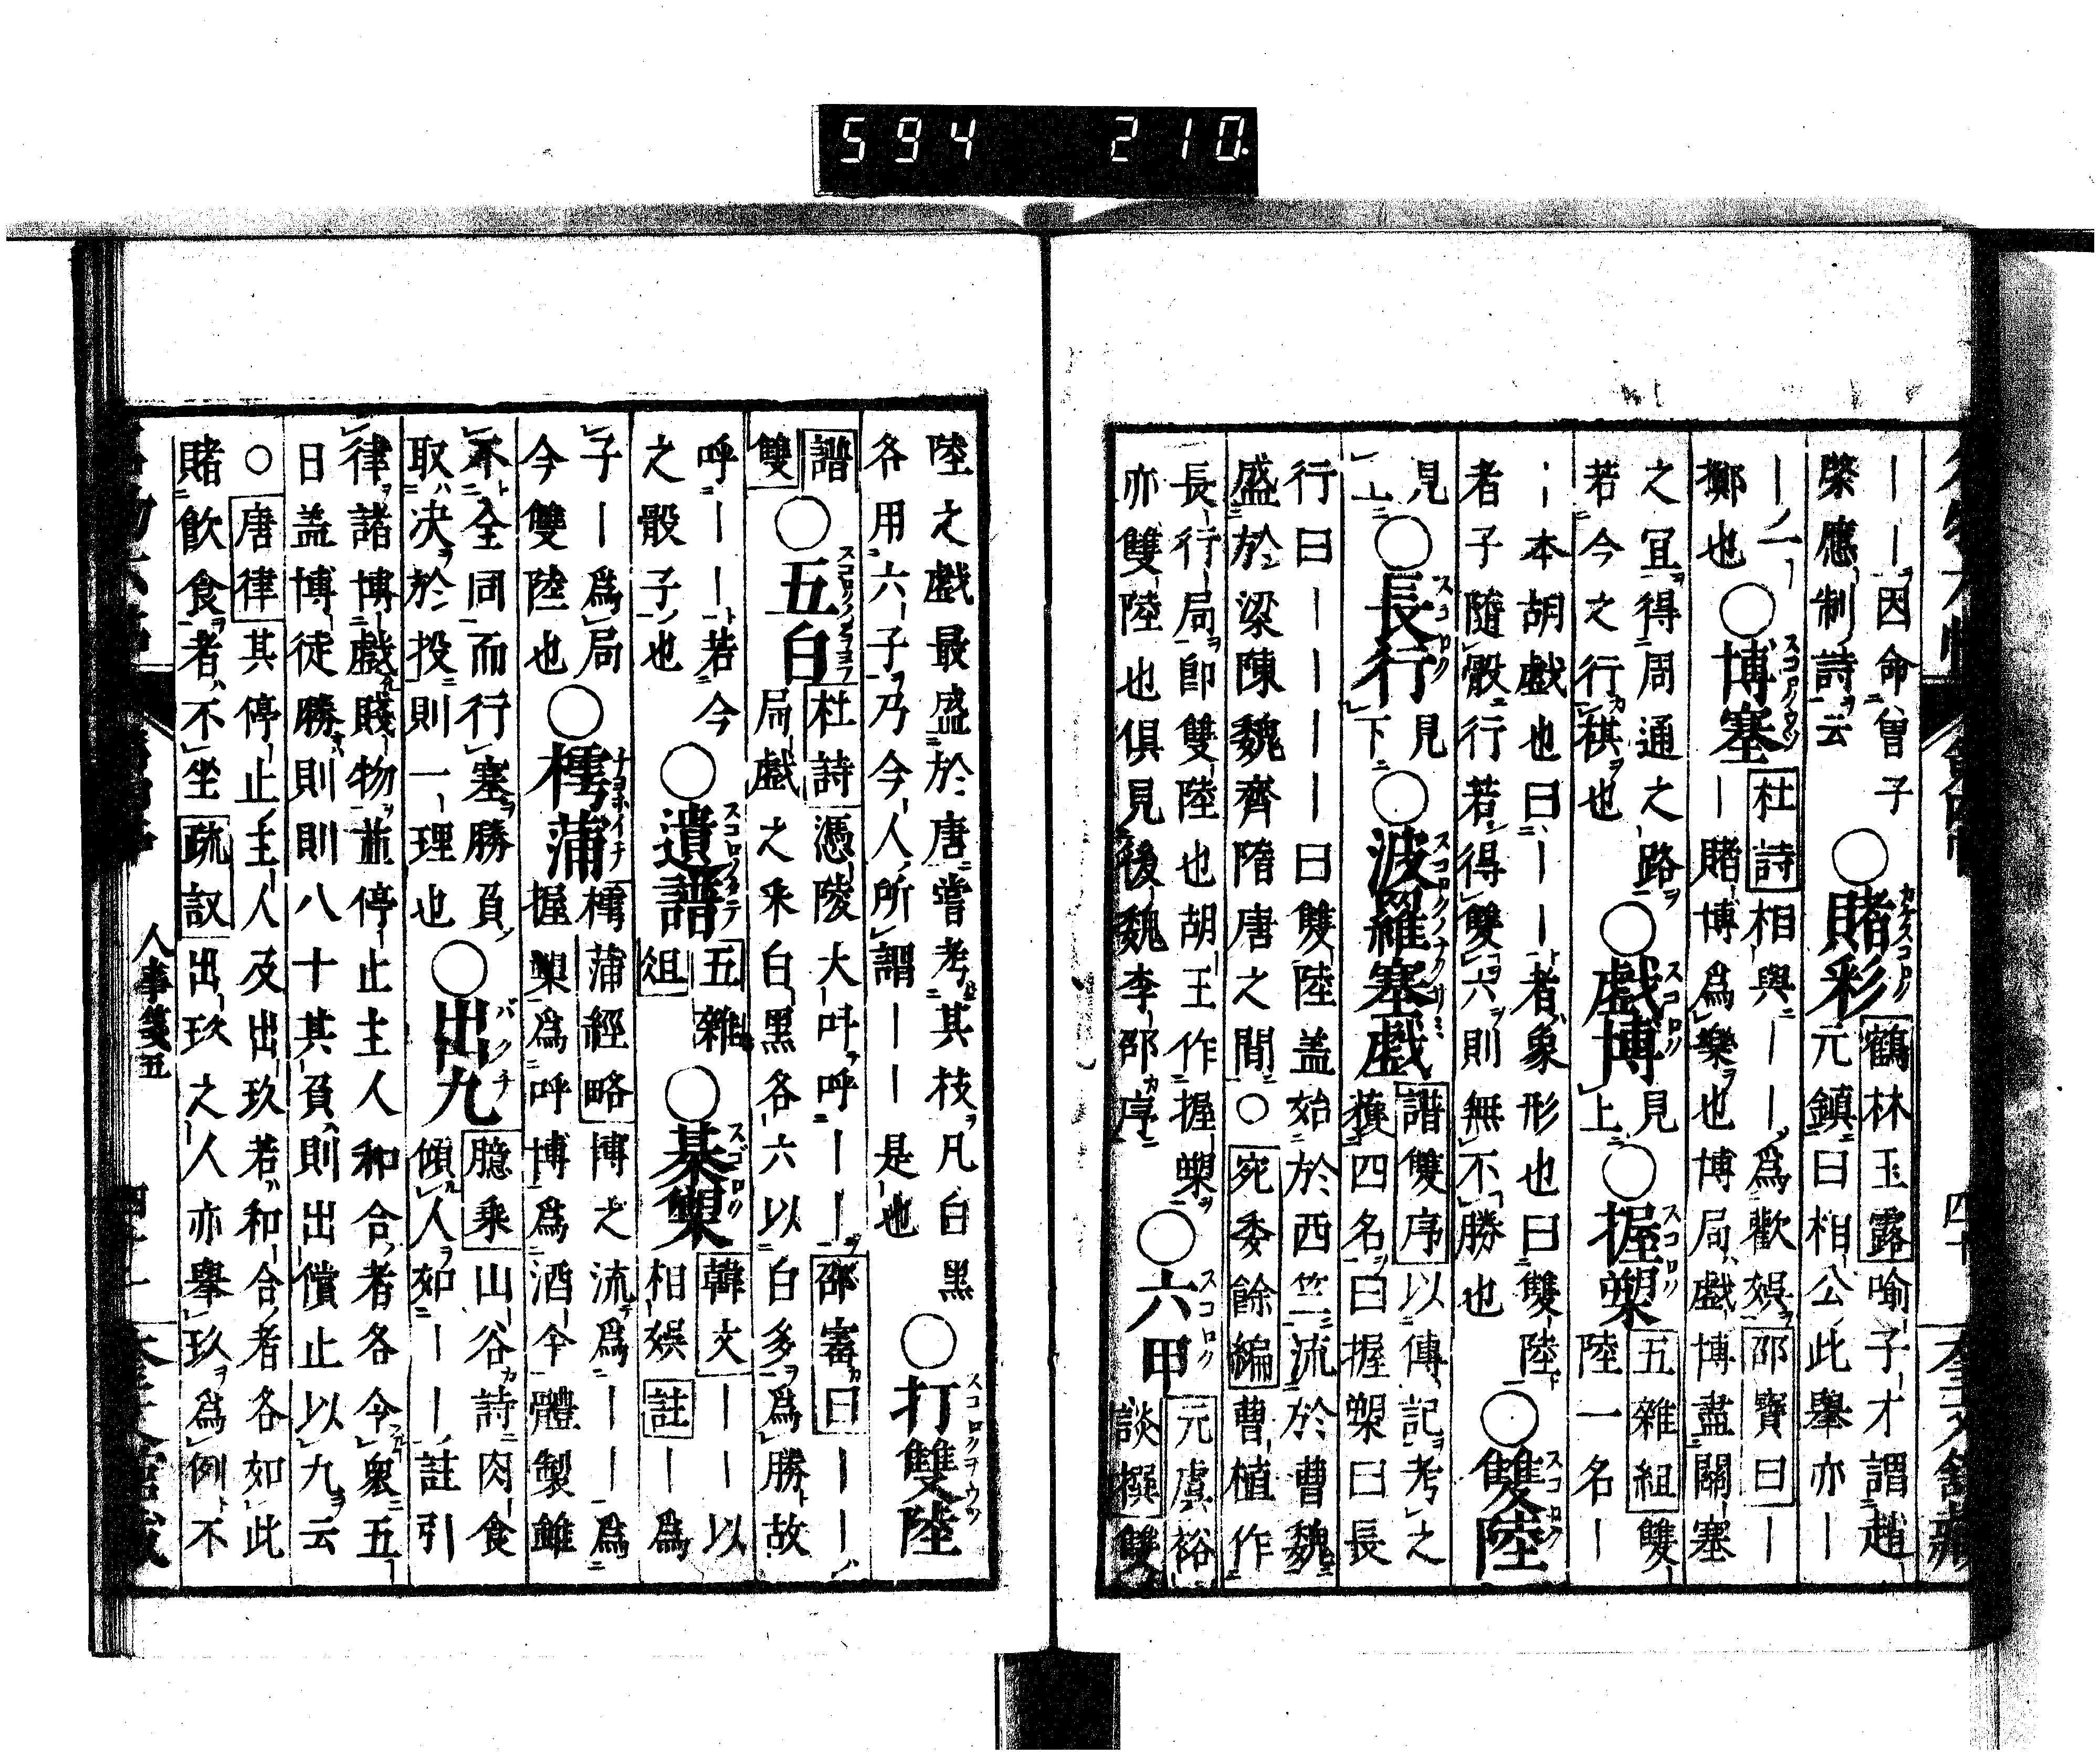 ――因命曽子
榮應制詩云
○賭彩
カケスコロク
鶴林玉露喻子才謂趙
元鎮曰相公此舉亦―
―ノ一
擲也
○博塞
スコロクウツ
杜詩相與――為歡娯邵寶曰―
―賭博為樂也博局戲博盡關塞
之冝得周通之路
若今之行棋也
○戲博
スコロク
見
上
○握槊
スコロク
五雜組雙
陸一名―
〻本胡戲也曰――者象形也曰雙陸
者子隨骰行若得雙六則無不勝也
○雙陸
スコロク
見
上
○長行
スコロク
見
下
○波羅塞戲
譜雙序以傳記考之
獲四名曰握槊曰長
行曰――――曰雙陸盖始於西竺流於曹魏
盛於梁陳魏齊隋唐之間○宛委餘編曹植作
長行局即雙陸也胡王作握槊
亦雙陸也俱見後魏李邵序
○六甲
スコロク
元虞裕
談撰雙
陸之戲最盛於唐嘗考其枝凡白黒
各用六子乃今人所謂――是也
○打雙陸
スコロクヲウツ
譜
雙
○五白
杜詩憑陵大呌呼――邵寳曰――
局戲之釆白黒各六以白多為勝故
呼――若今
之骰子也
○遺譜
五雜
俎
○棊槊
スゴロク
韓文――以
相娯註―為
子―為局
今雙陸也
○樗蒲
樗蒲經略博之流為――為
握槊為呼博為酒今體製雖
不全同而行塞勝負
取决於投則一理也
○出九
バクチ
臆乘山谷詩肉食
傾人如――註引
律諸博戲賤物並停止主人和合者各令衆五
日盖博徒勝則則八十其負則出償止以九云
○唐律其停止主人及出玖若和合者各如此
賭飲食者不坐疏議出玖之人亦舉玖為例不
人事箋五
594 210